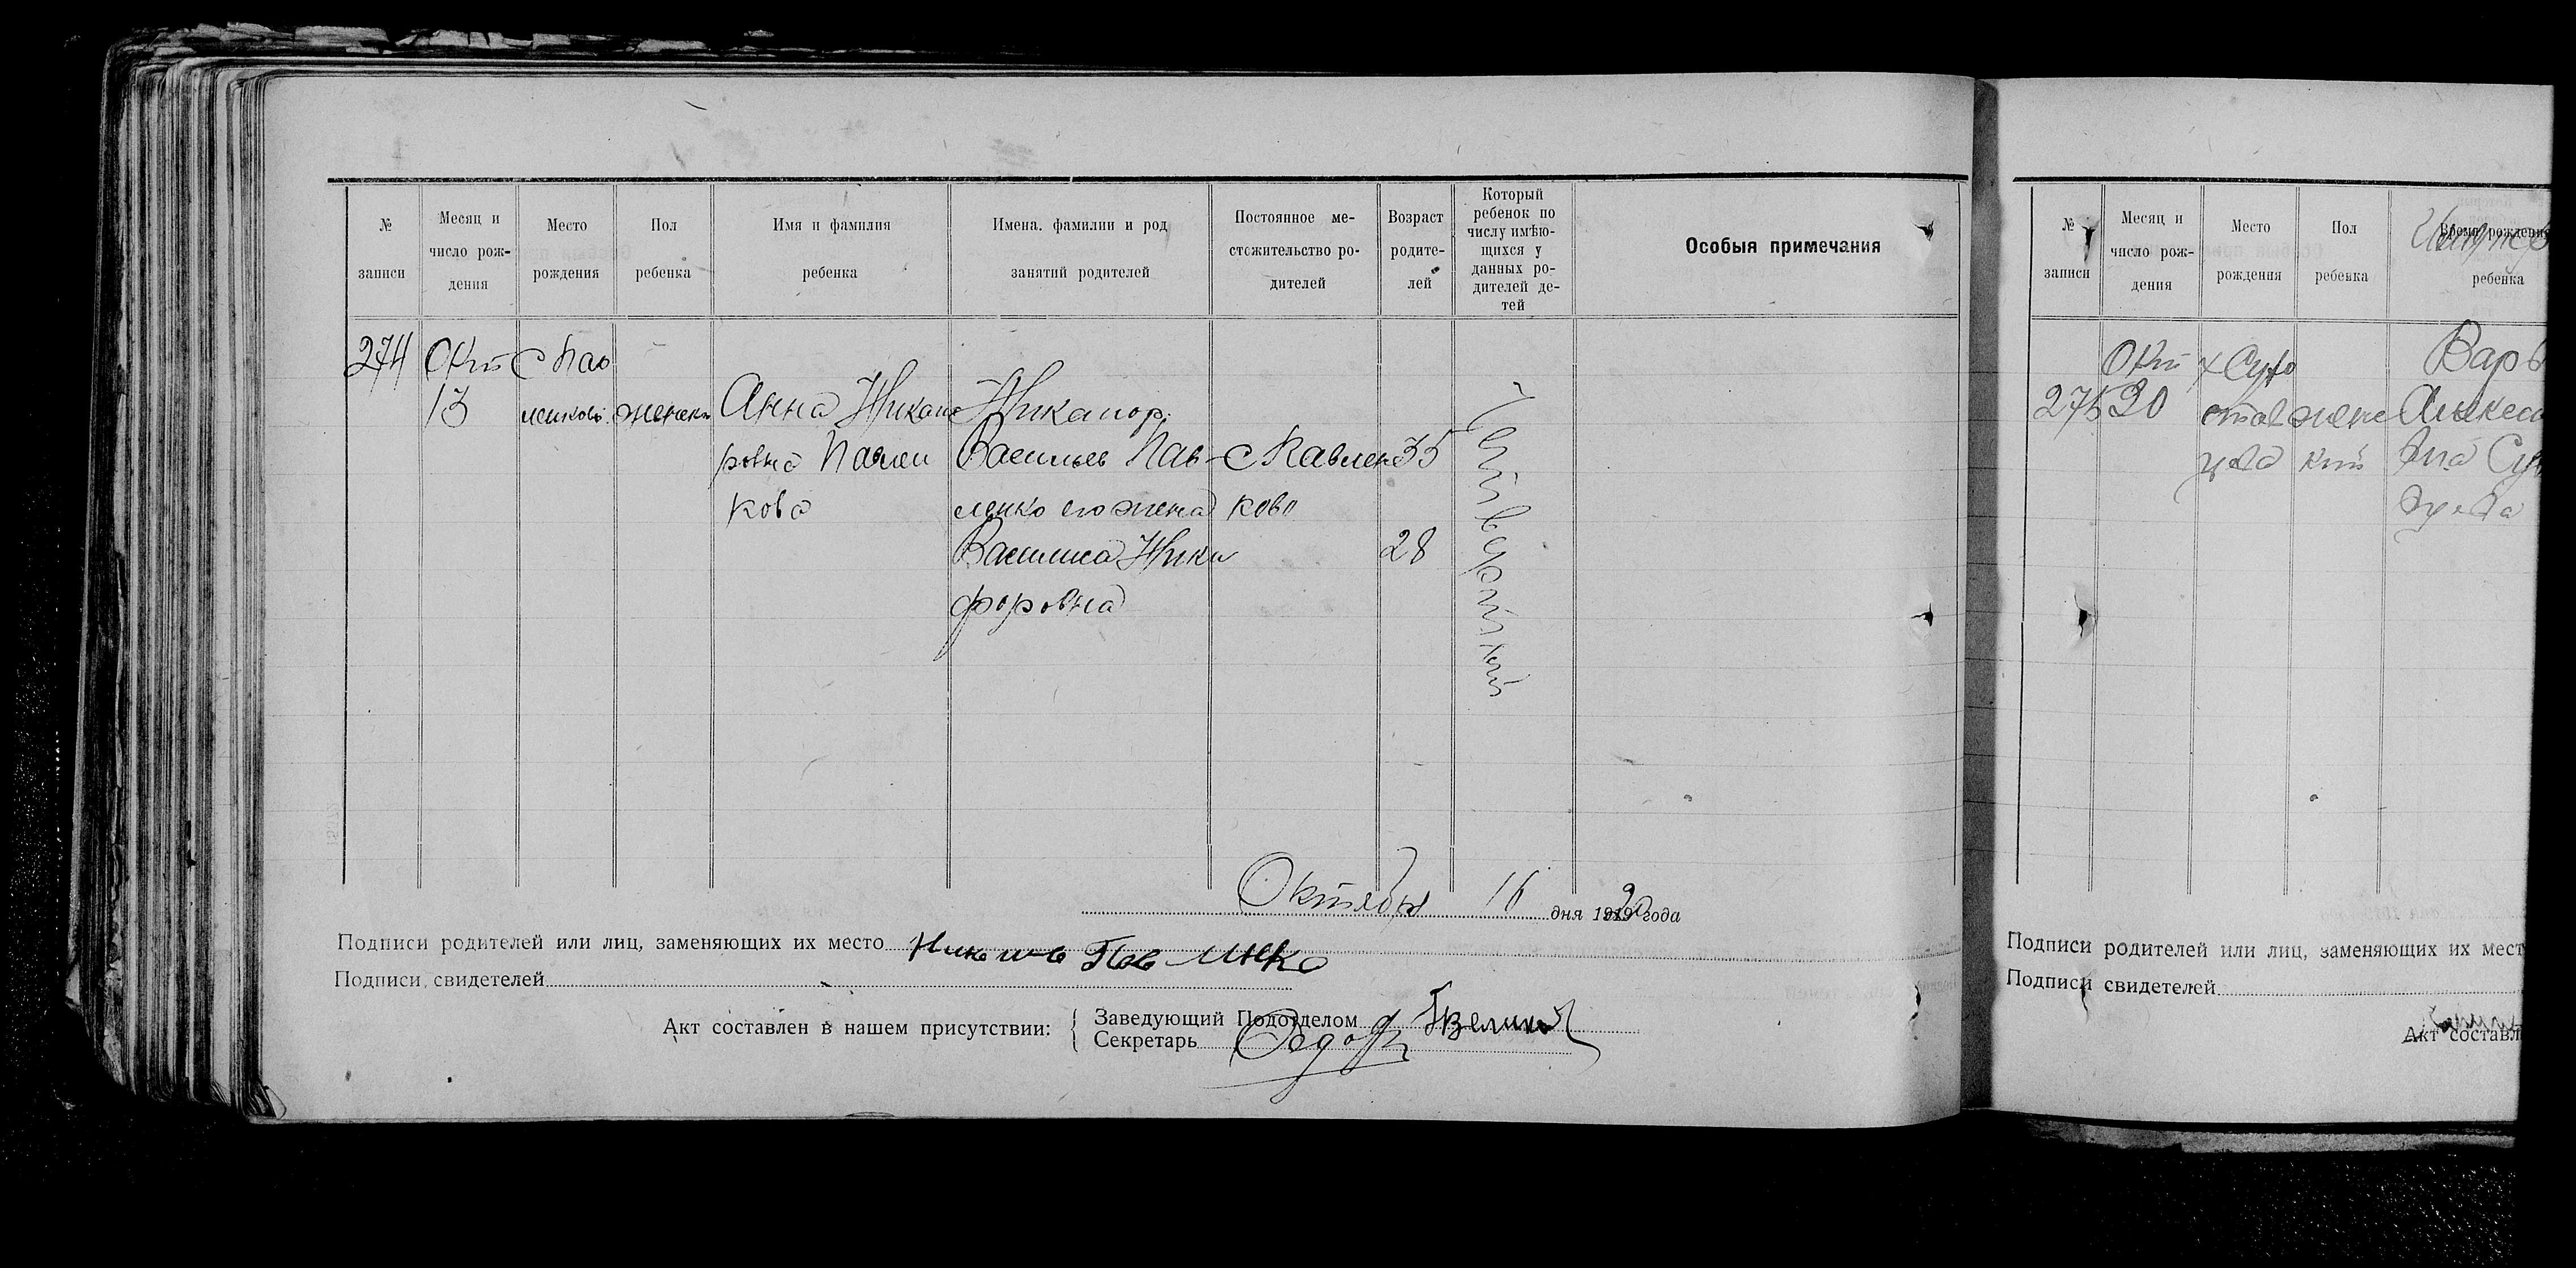 № записи
Месяц и число рождения
Место рождения
Пол ребенка
Имя и фамилия ребенка
Имена. фамилии и род занятий родителей
Постоянное местожительство родителей
Возраст родителей
Который ребенок по числу имѣющихся у данных родителей детей
Особыя примечания
274
Окт 13
с Пав
ленково
женски
Анна Никано
ровна Павлен
кова
Никанор
Васильев Пав-
ленко его жена
Василиса Ники
форовна
с Павлен
ково
35
28
Четвертый
Октября 16 дня 1920 года
Подписи родителей или лиц, заменяющих их место
Подписи свидетелей
Акт составлен в нашем присутствии:
Заведующий Подотделом
Секретарь
№ записи
Месяц и число рождения
Место рождения
Пол ребенка
ребенка
275
Окт
20
х Сухо
женс
кий
Варв
Алексе
Подписи родителей или лиц, заменяющих их мест
Подписи свидетелей
Акт составл